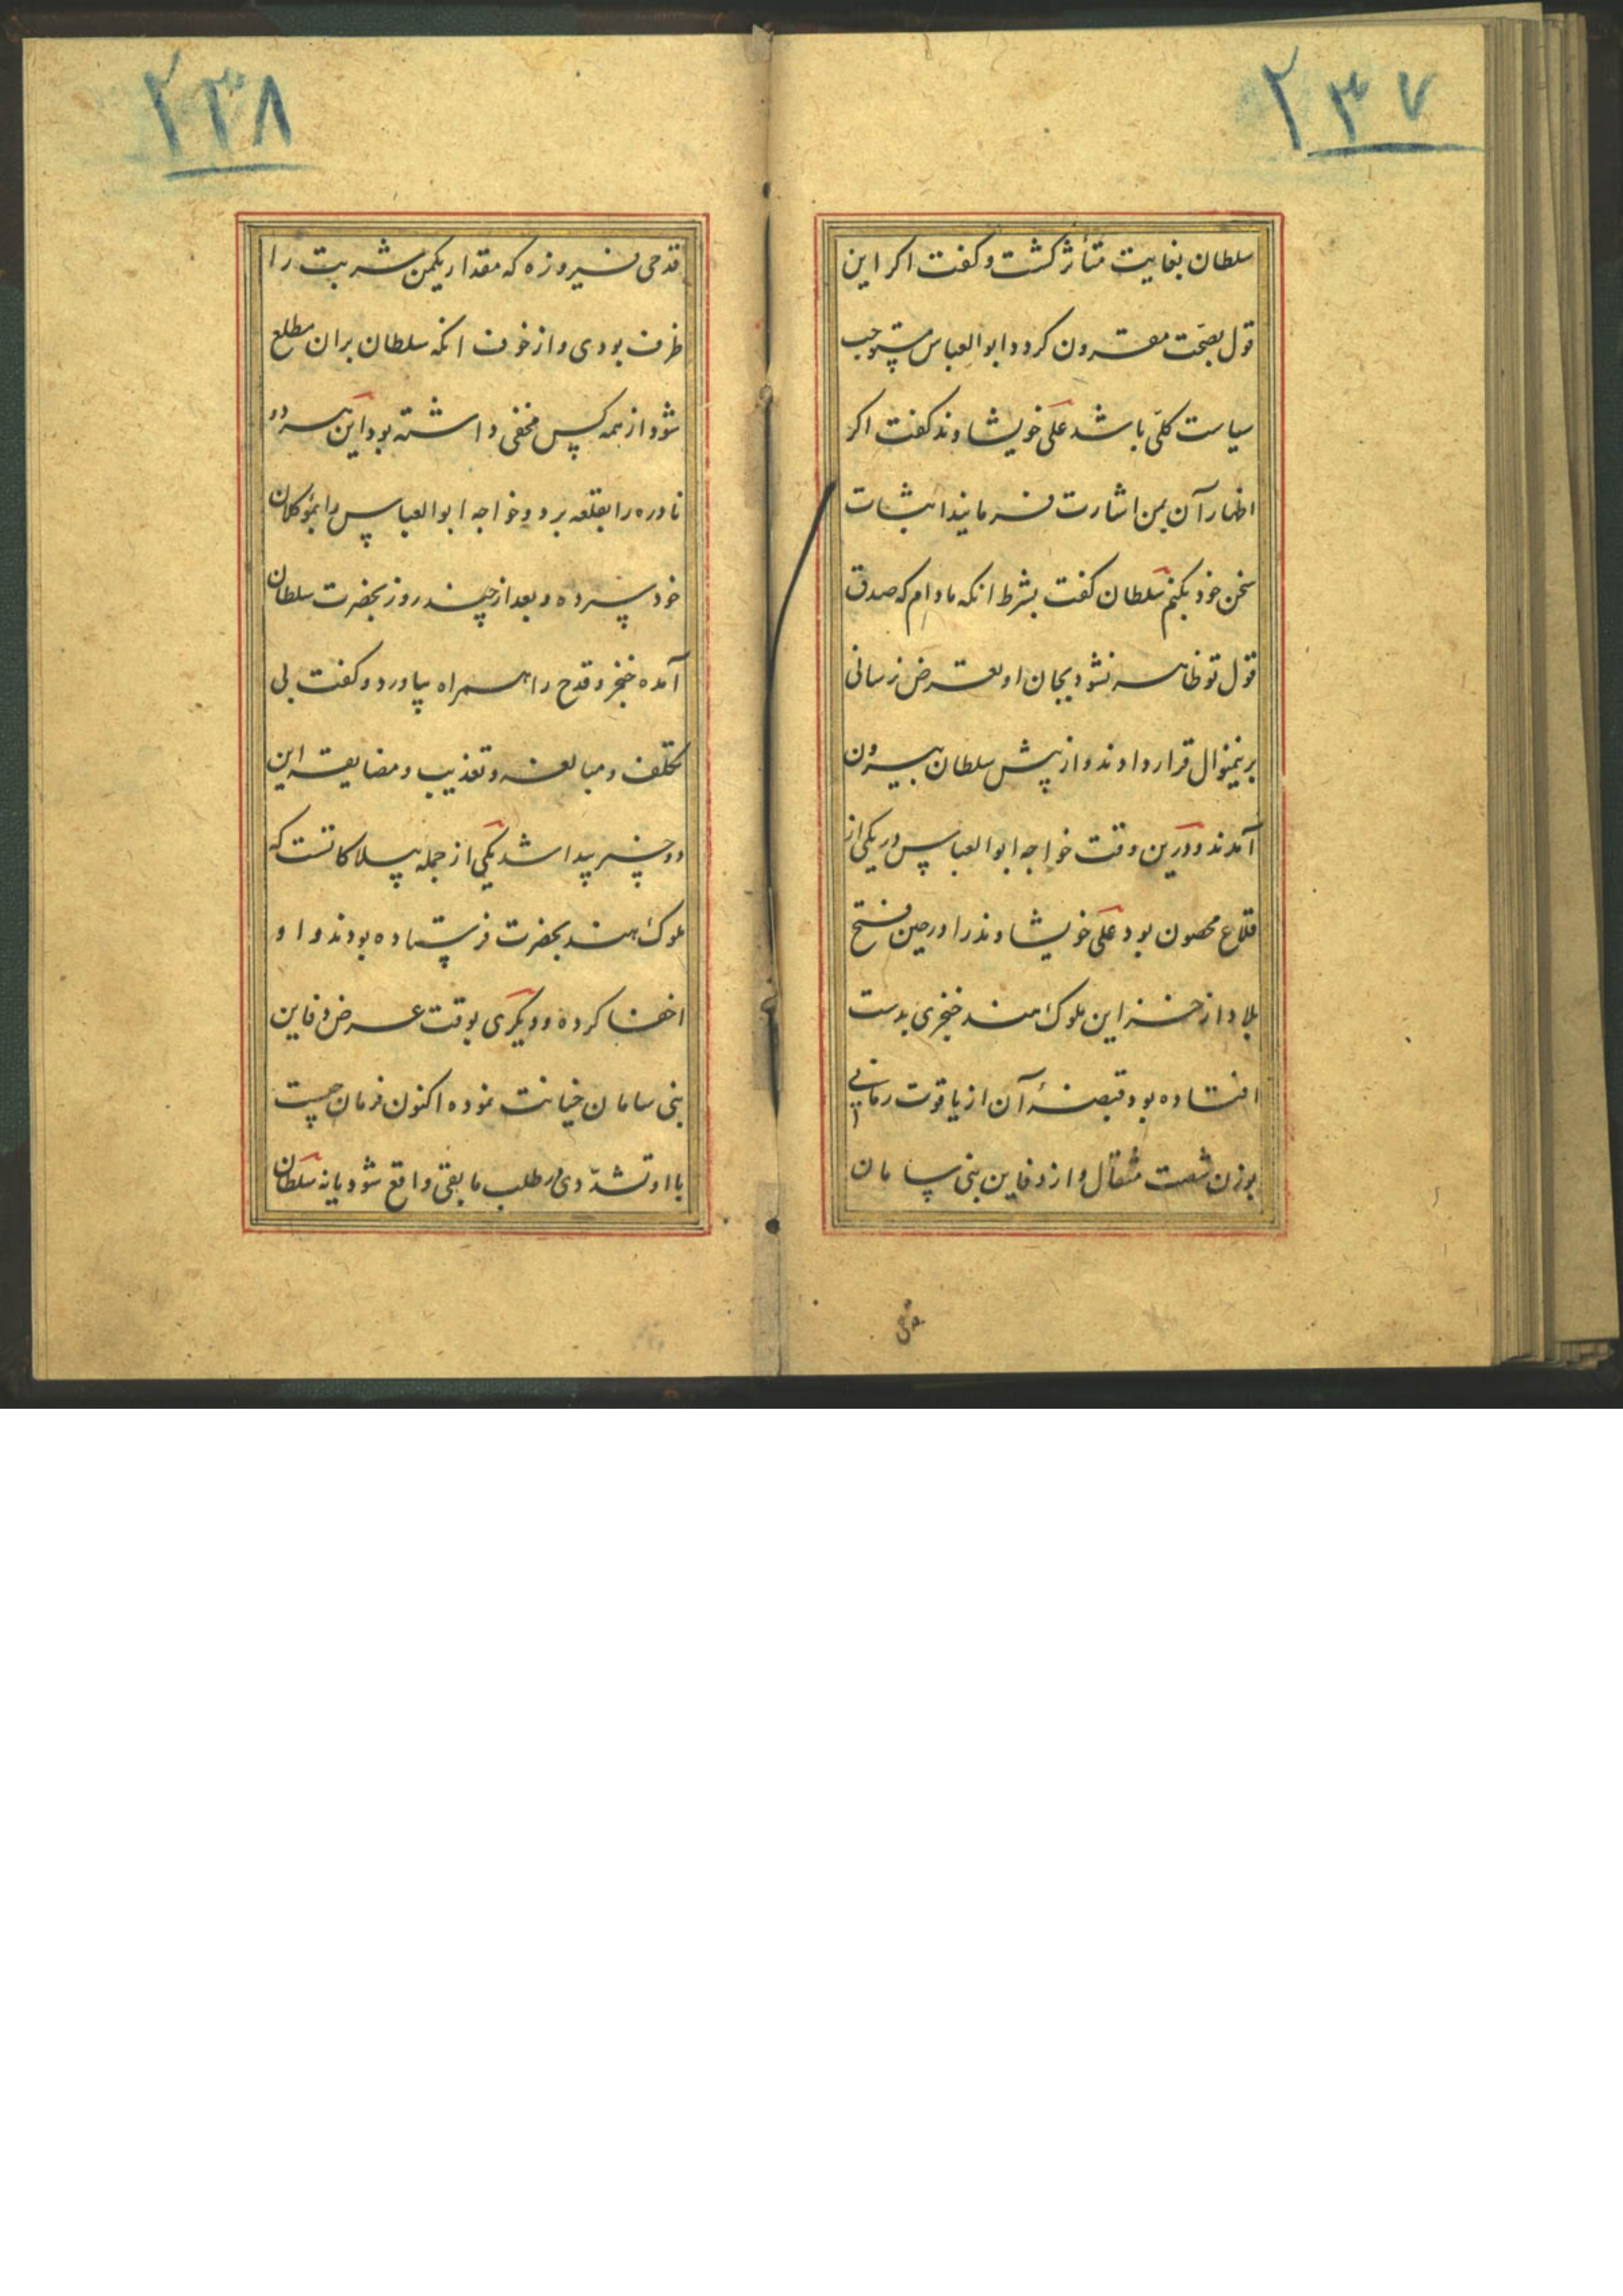 ۲۳۷
سلطان بغایت متأثر کشت و کفت اکر این
قول بصحّت مقرون کردد ابوالعباس مستوجب
سیاست کلّی باشد علی خویشاوند کفت اکر
اظهار آن بمن اشارت فرمایند اثبات
سخن خود بکنم سلطان کفت بشرط انکه مادام که صدق
قول تو ظاهر نشود بجان او تعرض نرسانی
برینمنوال قرار دادند و از پیش سلطان بیرون
آمدند و درین وقت خواجه ابوالعباس در یکی از
قلاع محصون بود علی خویشاوند را در حین فتح
بلاد از خزاین ملوک هند خنجری بدست
افتاده بود قبضهٔ آن از یاقوت رمانی
بوزن شصت مثقال و از دفاین بنی سامان
قدحی
۲۳۸
قدحی فیروزه که مقدار یکمن شربت را
ظرف بودی و از خوف انکه سلطان بران مطلع
شود از همه کس مخفی داشته بود این هر دو
نادره را بقلعه برد و خواجه ابوالعباس را بموکلان
خود سپرده و بعد از چند روز بحضرت سلطان
آمده خنجر و قدح را همراه بیاورد و کفت بی
تکلف و مبالغه و تعذیب و مضایقه این
دو چیز پیدا شد یکی از جمله بیلاکاتست که
ملوک هند بحضرت فرستاده بودند و او
اخفا کرده و دیکری بوقت عرض دفاین
بنی سامان خیانت نموده اکنون فرمان چیست
با او تشدّدی در طلب مابقی واقع شود یا نه سلطان